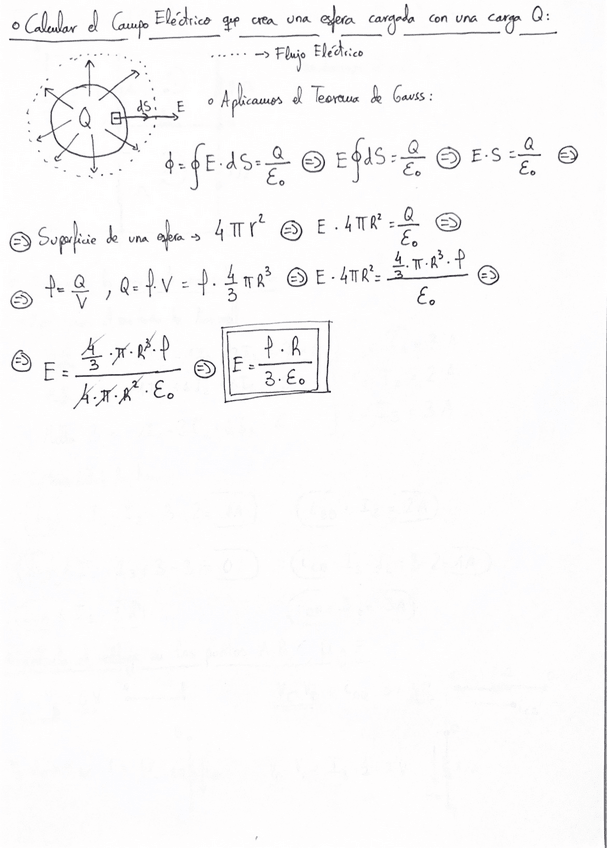 o Calcular el Campo Eléctrico que crea una esfera cargada con una carga Q:
...... → Flujo Eléctrico
Q dS E
o Aplicamos el Teorema de Gauss:
ϕ = ∮ E · dS = Q/ε₀ ⇒ E ∮ dS = Q/ε₀ ⇒ E · S = Q/ε₀ ⇒
⇒ Superficie de una esfera → 4πr² ⇒ E · 4πR² = Q/ε₀ ⇒
⇒ ρ = Q/V , Q = ρ · V = ρ · 4/3 πR³ ⇒ E · 4πR² = (4/3 · π · R³ · ρ)/ε₀ ⇒
⇒ E = (4/3 · π · R³ · ρ)/(4 · π · R² · ε₀) ⇒ E = (ρ · R)/(3 · ε₀)